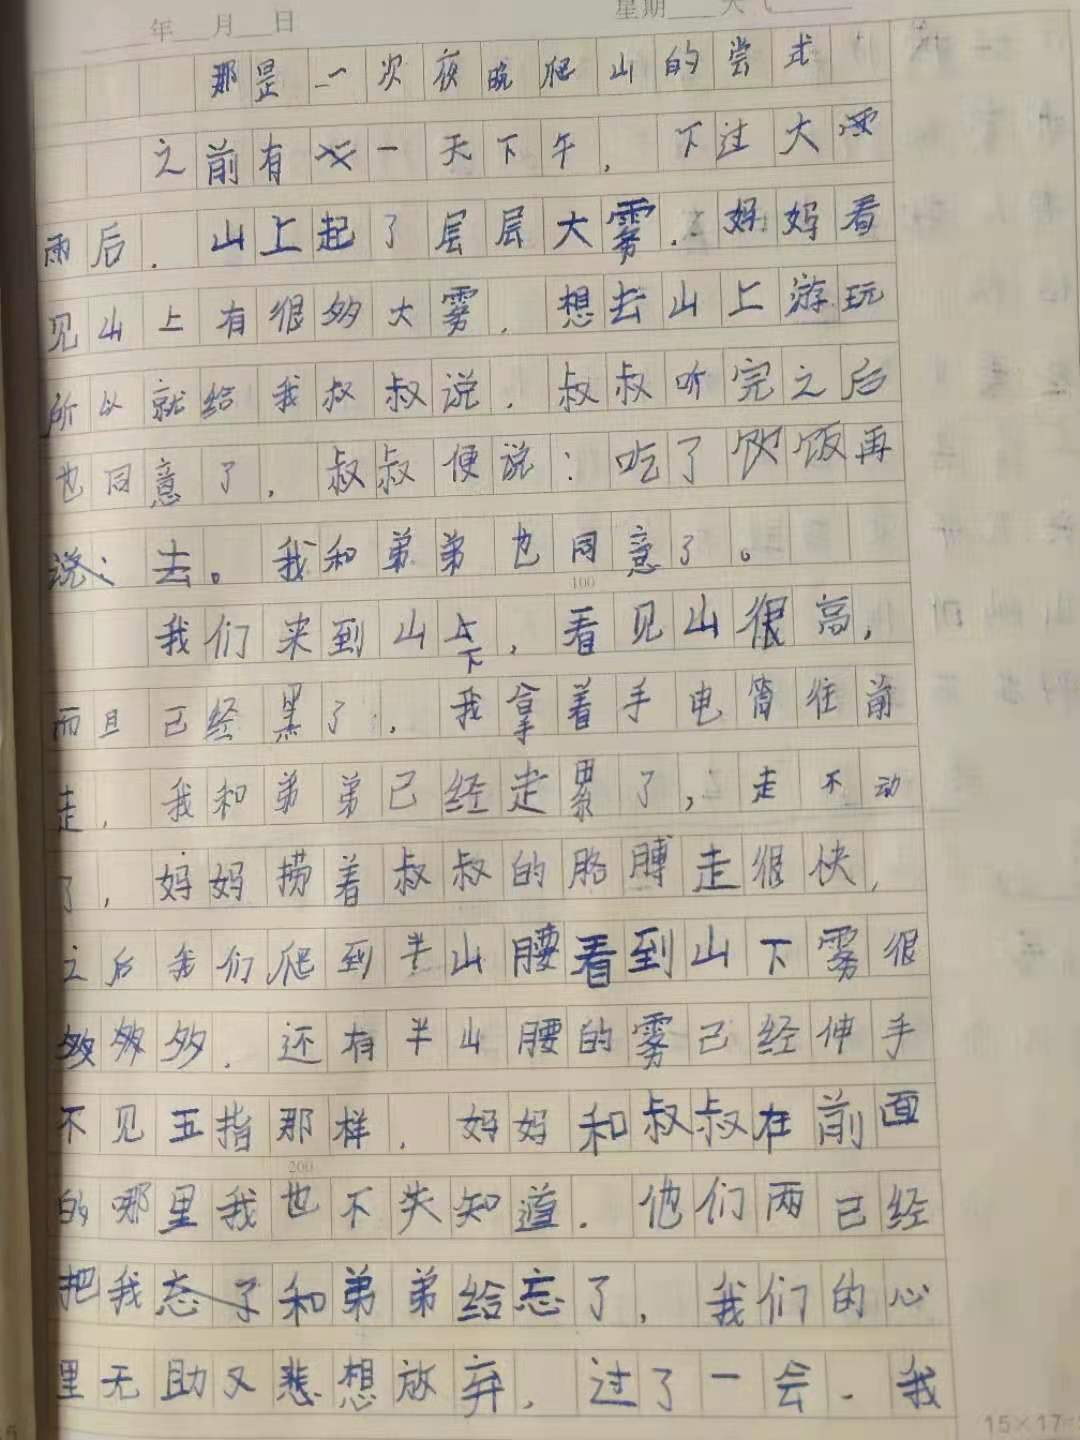 年 月 日 星期 天气
那是一次夜晚爬山的尝式
之前有一天下午，下过大
雨后．山上起了层层大雾．妈妈看
见山上有很多大雾．想去山上游玩
所以就给我叔叔说．叔叔听完之后
也同意了，叔叔便说：吃了饭再
去。我和弟弟也同意了。
100
我们来到山下，看见山很高，
而且已经黑了．我拿着手电筒往前
走，我和弟弟已经走累了，走不动
了，妈妈捞着叔叔的胳膊走很快，
之后我们爬到半山腰看到山下雾很
多．还有半山腰的雾已经伸手
不见五指那样．妈妈和叔叔在前面
200
的哪里我也不知道．他们两已经
把我和弟弟给忘了，我们的心
里无助又悲想放弃．过了一会．我
15×17